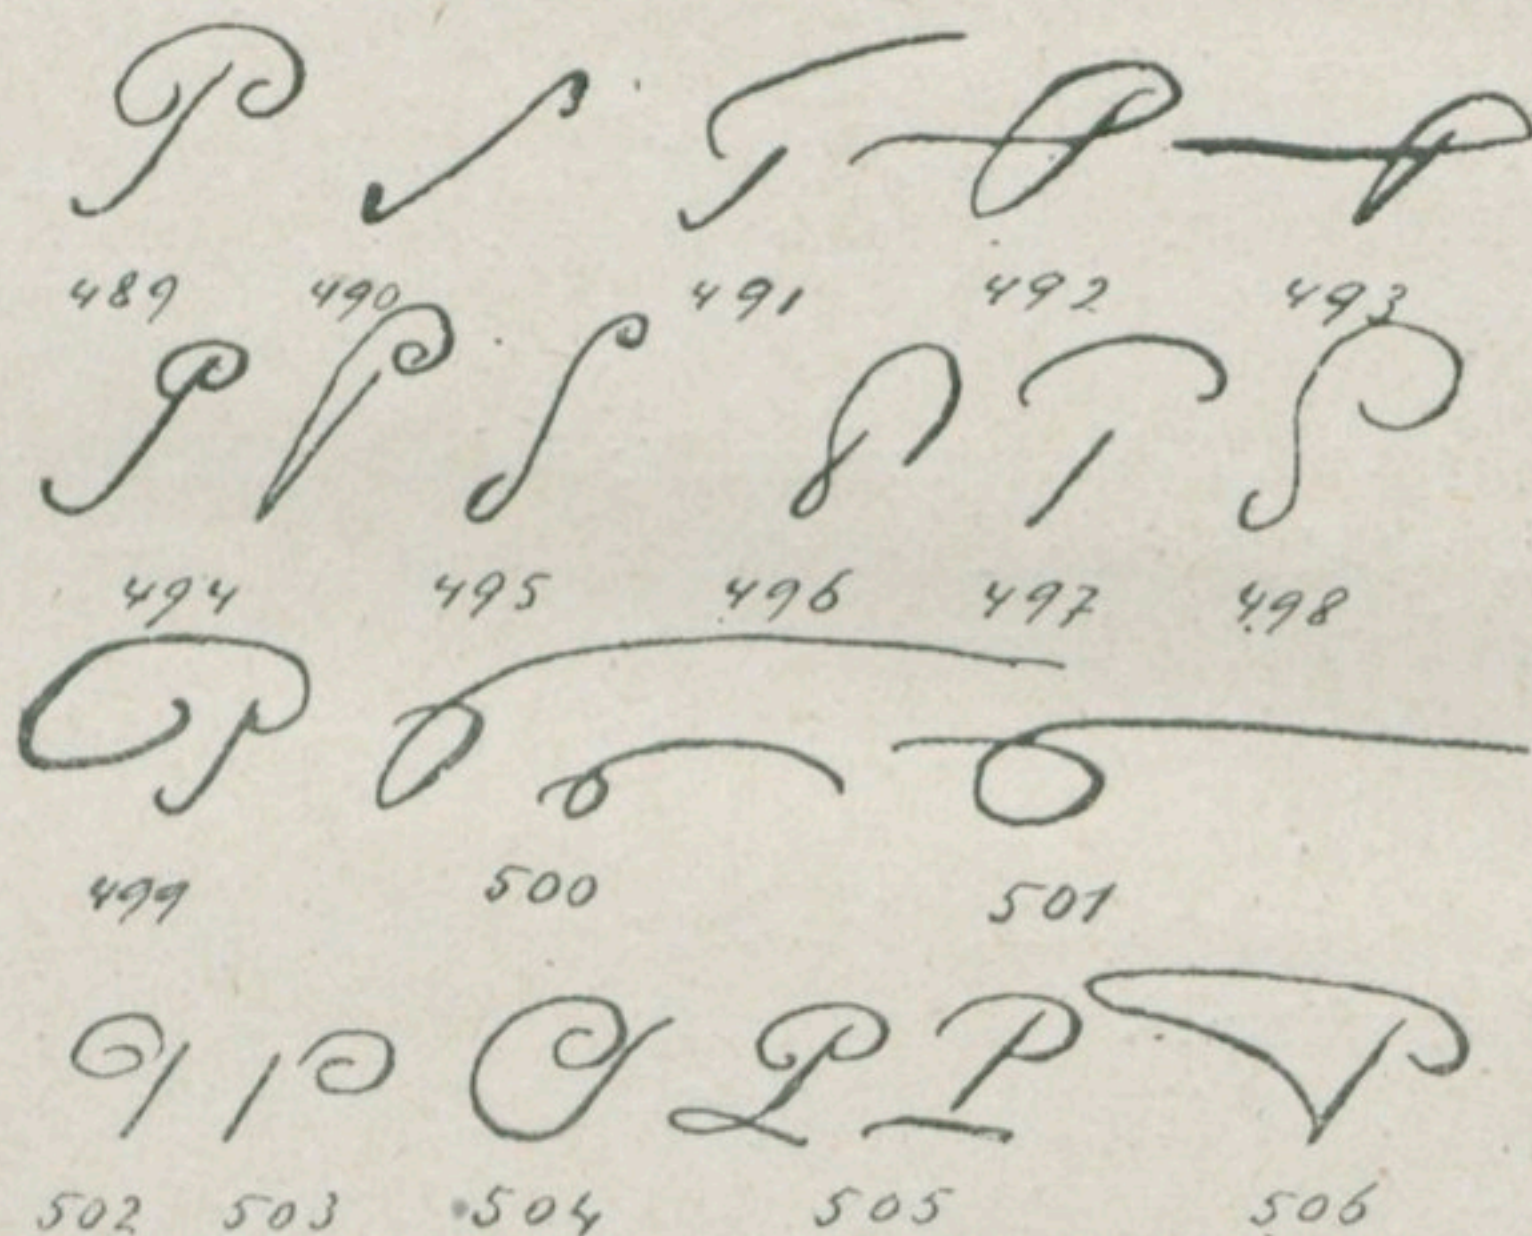 489 490 491 492 493
494 495 496 497 498
499 500 501
502 503 504 505 506